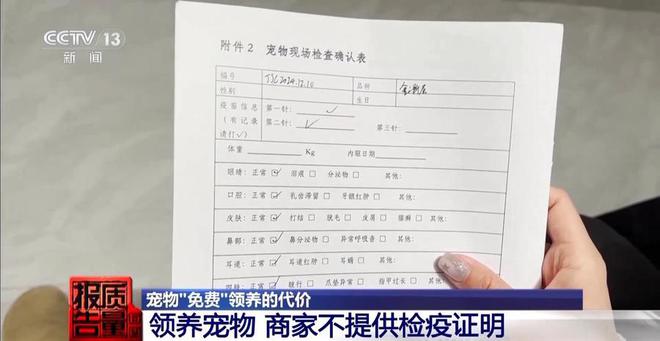 CCTV 13
新闻
附件2 宠物现场检查确认表
编号 TJL2024.12.10 品种 金渐层
性别 生日
疫苗信息 第一针: ✓
(有记录 第二针: ✓ 第三针:
请打✓)
体重 Kg 内驱日期
眼睛: 正常 ☑ 泪痕 □ 分泌物 □ 其他:
口腔: 正常 ☑ 乳齿滞留 □ 牙龈红肿 □ 其他:
皮肤: 正常 ☑ 打结 □ 脱毛 □ 皮屑 □ 猫癣 □ 其他:
鼻部: 正常 ☑ 鼻分泌物 □ 异常呼吸音 □ 其他:
耳道: 正常 ☑ 耳道红肿 □ 耳螨 □ 其他:
四肢: 正常 跛行 □ 爪垫异常 □ 指甲过长 □ 其他:
质量报告
宠物"免费"领养的代价
领养宠物 商家不提供检疫证明